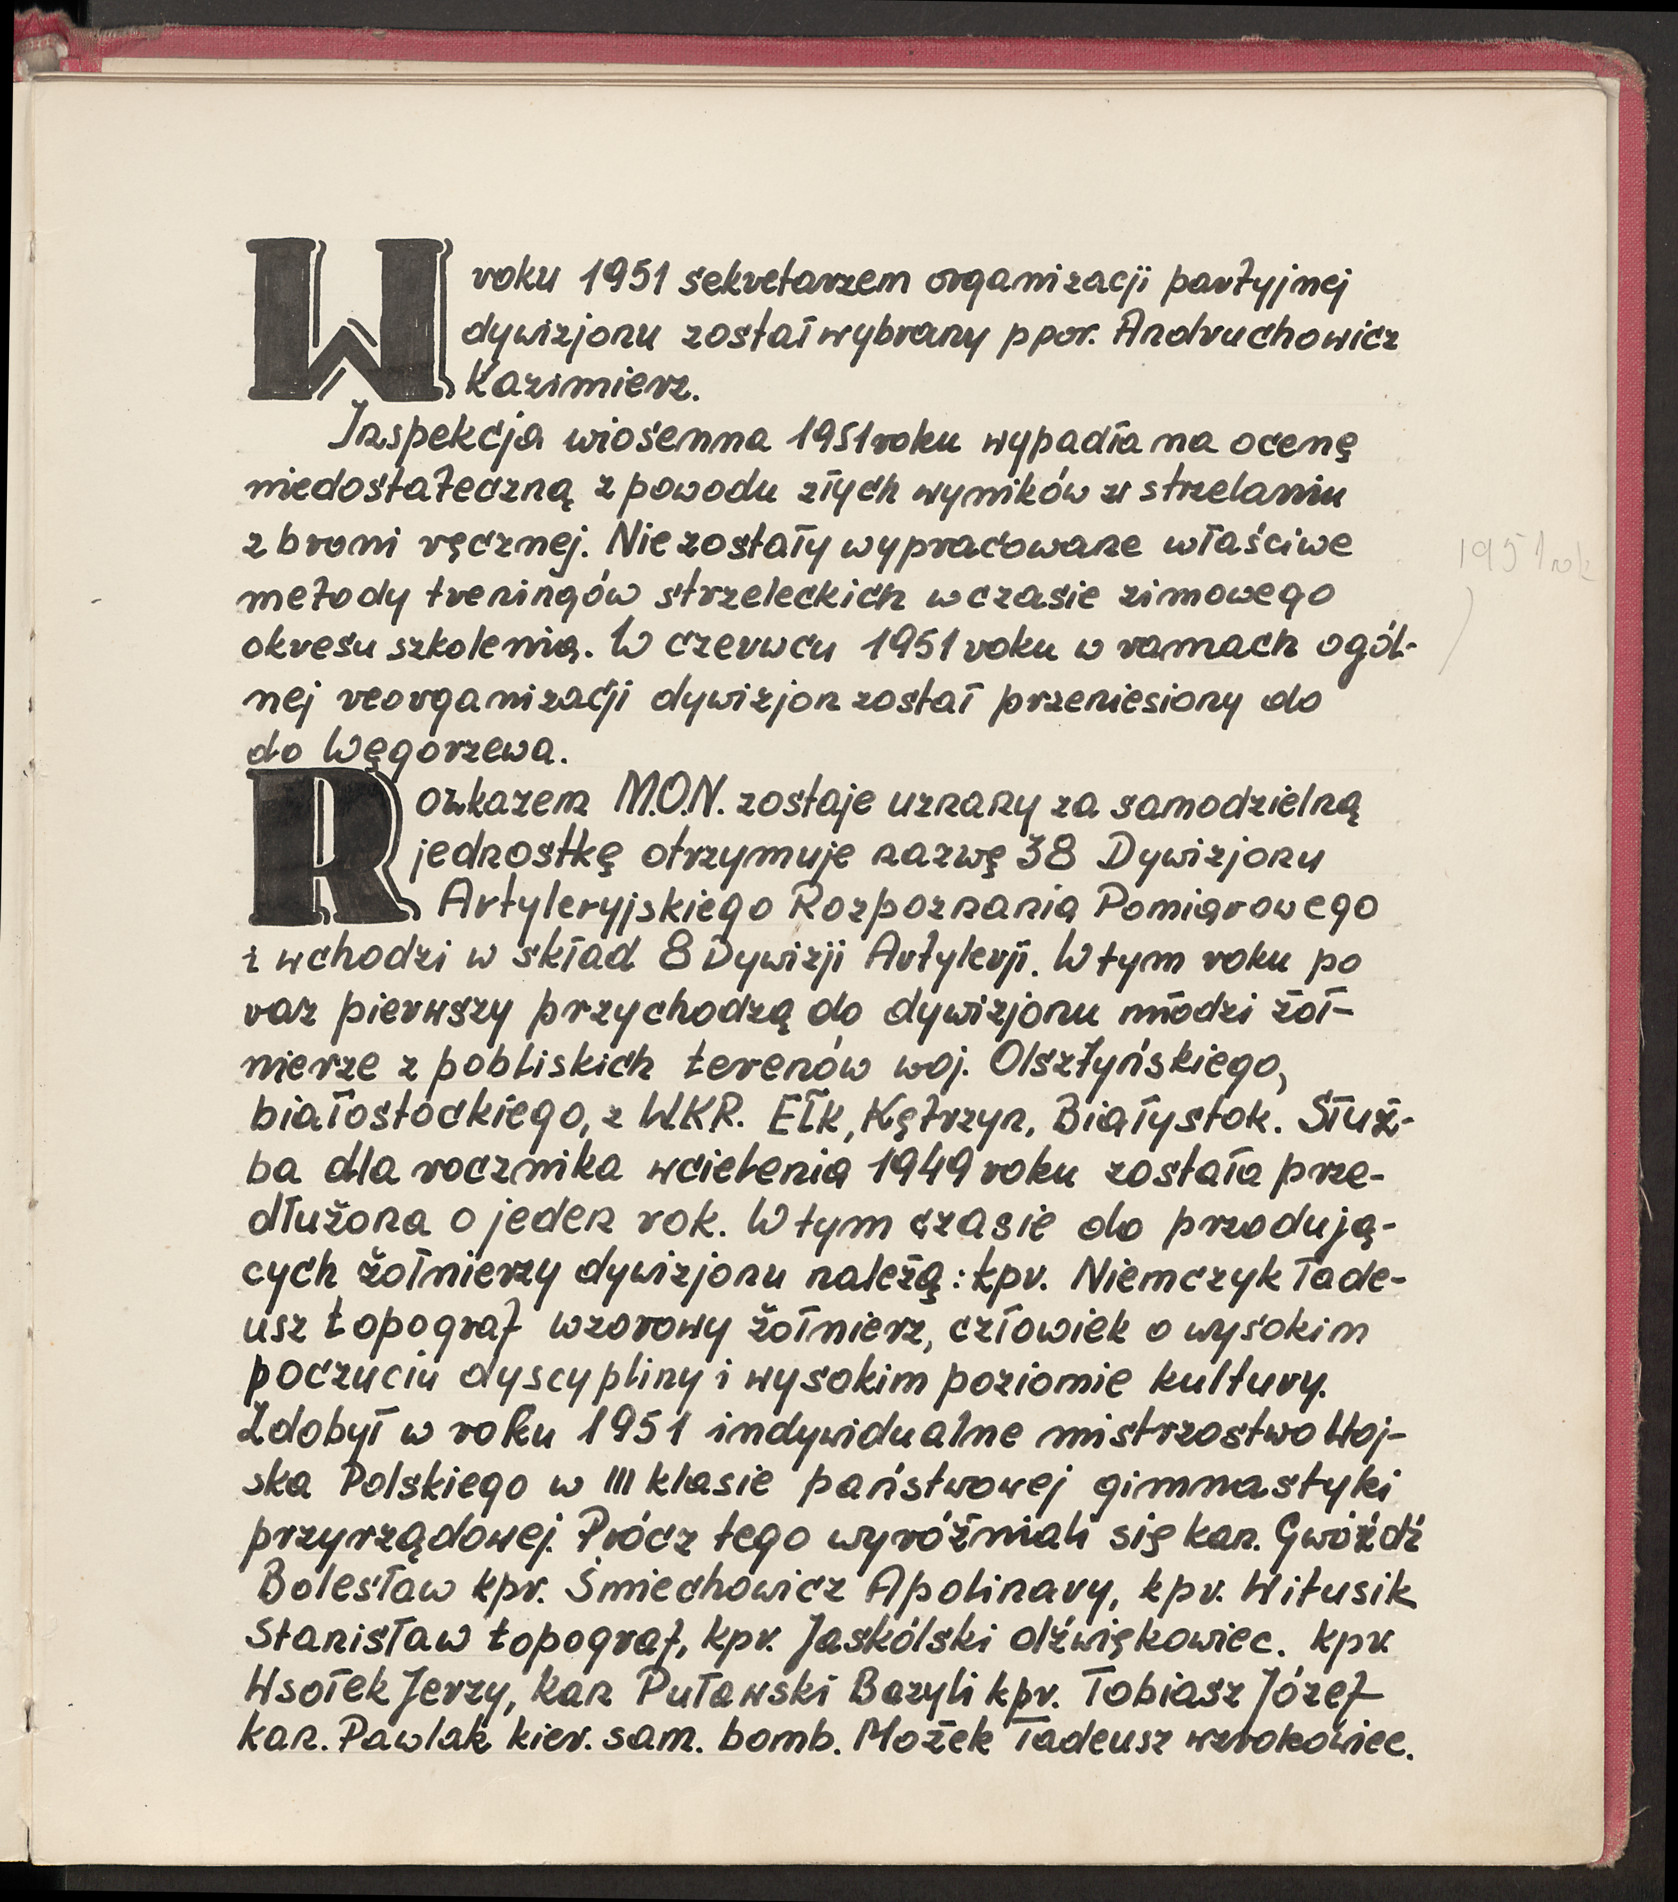 W roku 1951 sekretarzem organizacji partyjnej
dywizjonu został wybrany ppor. Andruchowicz
Kazimierz.
Inspekcja wiosenna 1951 roku wypadła na ocenę
niedostateczną z powodu złych wyników w strzelaniu
z broni ręcznej. Nie zostały wypracowane właściwe
metody treningów strzeleckich w czasie zimowego
okresu szkolenia. W czerwcu 1951 roku w ramach ogól-
nej reorganizacji dywizjon został przeniesiony do
do Węgorzewa.
1951 rok
Rozkazem M.O.N. zostaje uznany za samodzielną
jednostkę otrzymuje nazwę 38 Dywizjonu
Artyleryjskiego Rozpoznania Pomiarowego
i wchodzi w skład 8 Dywizji Artylerji. W tym roku po
raz pierwszy przychodzą do dywizjonu młodzi żoł-
nierze z pobliskich terenów woj. Olsztyńskiego,
białostockiego, z WKR. Ełk, Kętrzyn, Białystok. Służ-
ba dla rocznika wcielenia 1949 roku została prze-
dłużona o jeden rok. W tym czasie do przodują-
cych żołnierzy dywizjonu należą: kpr. Niemczyk Tade-
usz topograf wzorowy żołnierz, człowiek o wysokim
poczuciu dyscypliny i wysokim poziomie kultury.
Zdobył w roku 1951 indywidualne mistrzostwo Woj-
ska Polskiego w III klasie państwowej gimnastyki
przyrządowej. Prócz tego wyróżniali się kan. Gwóźdź
Bolesław kpr. Śmiechowicz Apolinary, kpr. Witusik
Stanisław topograf, kpr. Jaskólski dźwiękowiec. kpr.
Wsołek Jerzy, kan Puławski Bazyli kpr. Tobiasz Józef
kan. Pawlak kier. sam. bomb. Możek Tadeusz wzrokowiec.